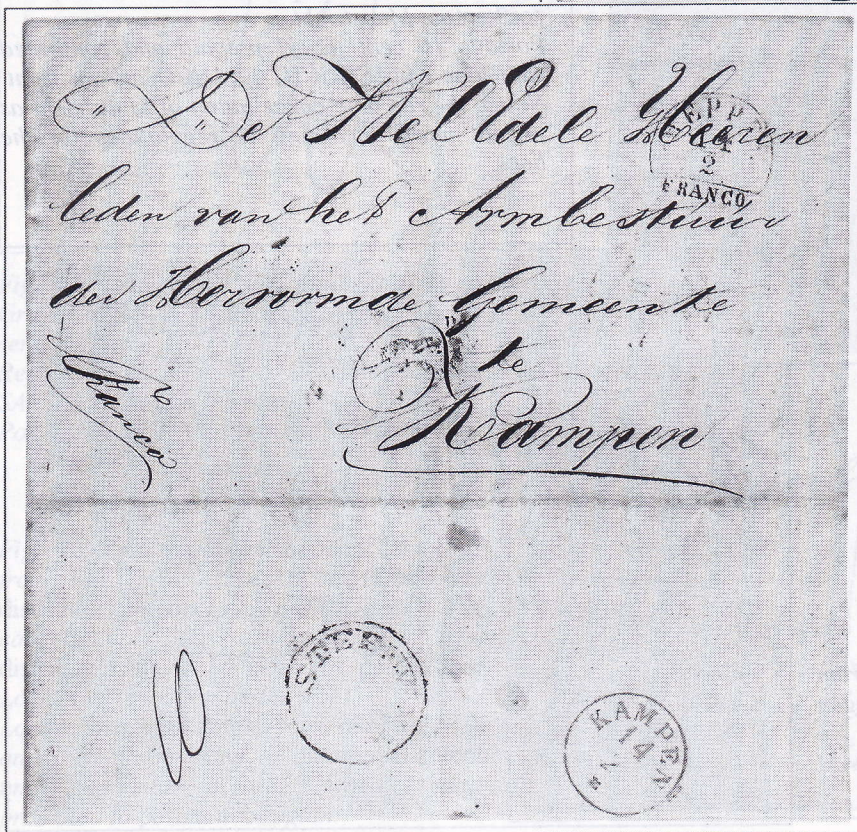 De WelEdele Heeren
EPP
14
2
FRANCO
leden van het Armbestuur
der Hervormde Gemeente
te
Kampen
Franco
KAMPEN
14
2